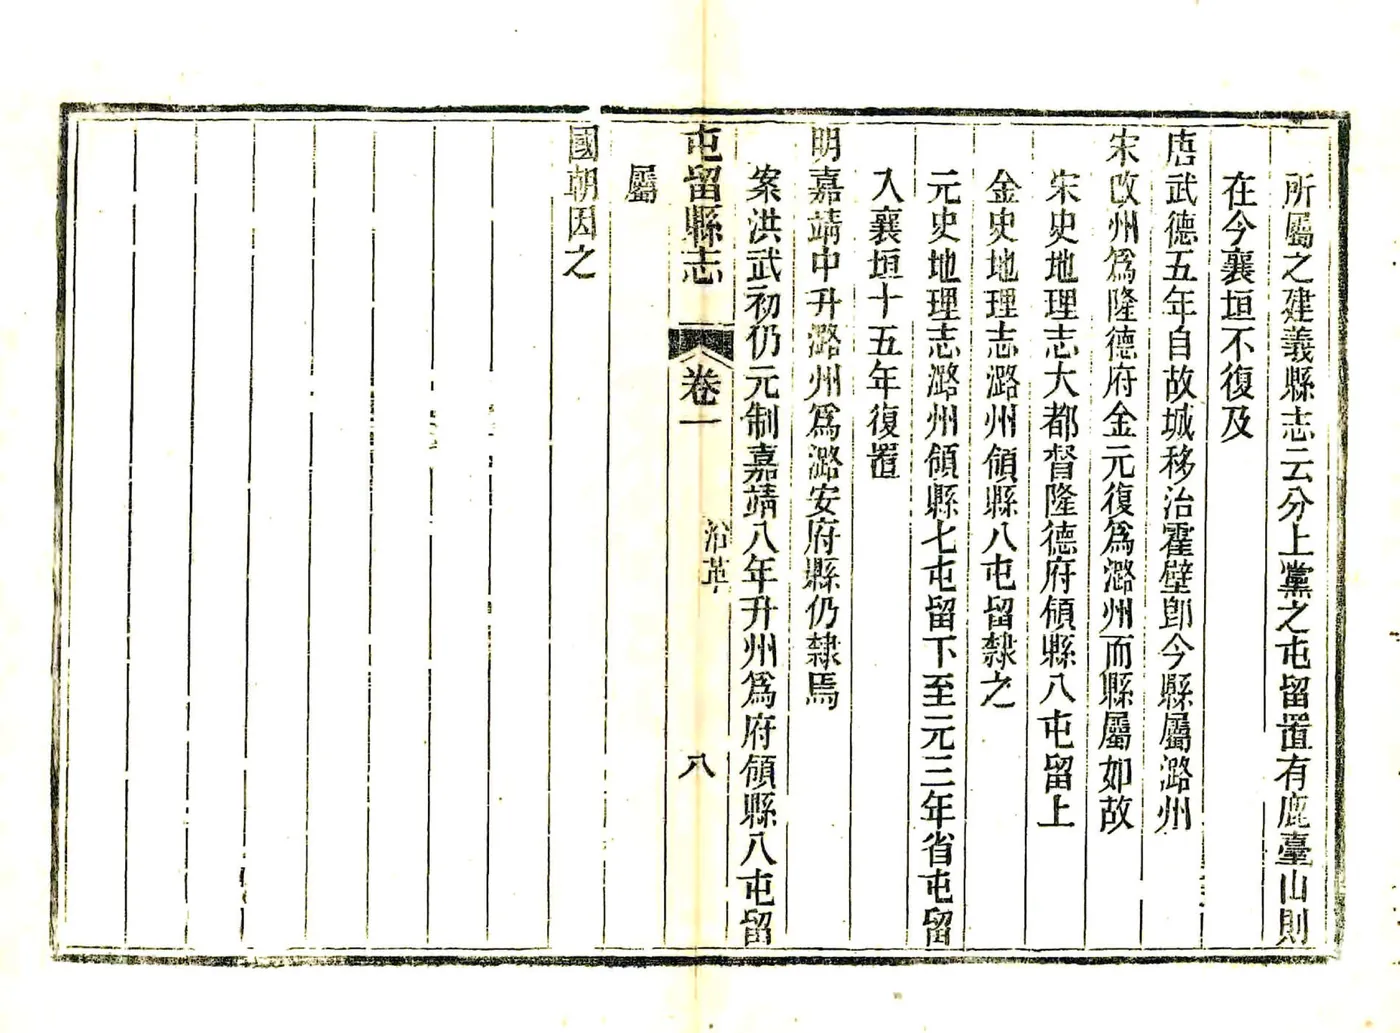 所屬之建義縣志云分上黨之屯留置有鹿臺山則
在今襄垣不復及
唐武德五年自故城移治霍壁卽今縣屬潞州
宋改州爲隆德府金元復爲潞州而縣屬如故
宋史地理志大都督隆德府領縣八屯留上
金史地理志潞州領縣八屯留隸之
元史地理志潞州領縣七屯留下至元三年省屯留
入襄垣十五年復置
明嘉靖中升潞州爲潞安府縣仍隸焉
案洪武初仍元制嘉靖八年升州爲府領縣八屯留
屯留縣志 卷一 沿革 八
屬
國朝因之